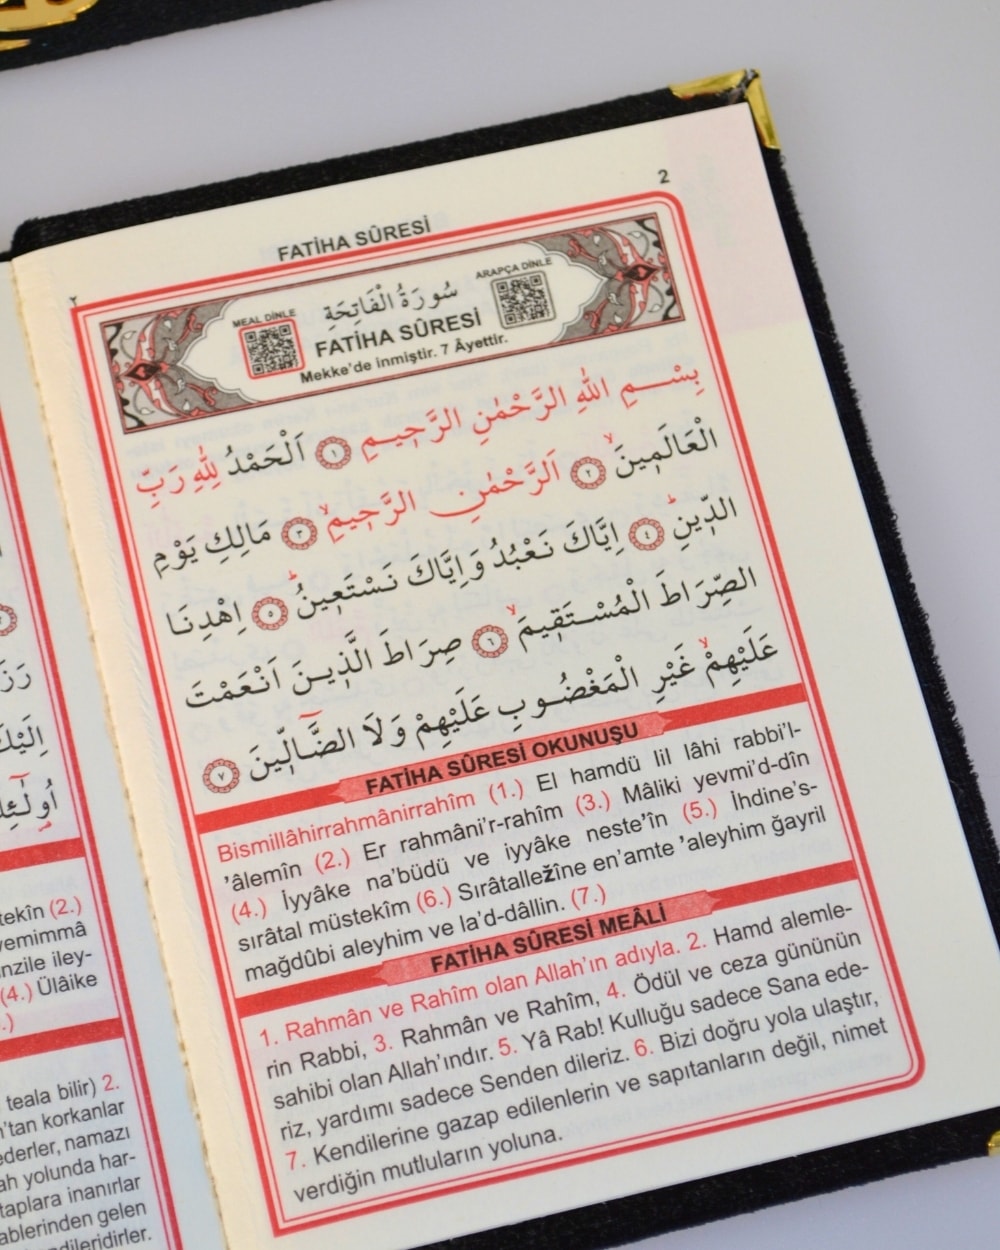 FATİHA SÛRESİ
2
٢
MEAL DİNLE
سُورَةُ الْفَاتِحَةِ
ARAPÇA DİNLE
FATİHA SÛRESİ
Mekke'de inmiştir. 7 Âyettir.
بِسْمِ اللّٰهِ الرَّحْمٰنِ الرَّح۪يمِ ﴿١﴾ اَلْحَمْدُ لِلّٰهِ رَبِّ
الْعَالَم۪ينَۙ ﴿٢﴾ اَلرَّحْمٰنِ الرَّح۪يمِۙ ﴿٣﴾ مَالِكِ يَوْمِ
الدّ۪ينِۜ ﴿٤﴾ اِيَّاكَ نَعْبُدُ وَاِيَّاكَ نَسْتَع۪ينُۜ ﴿٥﴾ اِهْدِنَا
الصِّرَاطَ الْمُسْتَق۪يمَۙ ﴿٦﴾ صِرَاطَ الَّذ۪ينَ اَنْعَمْتَ
عَلَيْهِمْۙ غَيْرِ الْمَغْضُوبِ عَلَيْهِمْ وَلَا الضَّٓالّ۪ينَ ﴿٧﴾
FATİHA SÛRESİ OKUNUŞU
Bismillâhirrahmânirrahîm (1.) El hamdü lil lâhi rabbi'l-
'âlemîn (2.) Er rahmâni'r-rahîm (3.) Mâliki yevmi'd-dîn
(4.) İyyâke na'büdü ve iyyâke neste'în (5.) İhdine's-
sırâtal müstekîm (6.) Sırâtallezîne en'amte 'aleyhim ğayril
mağdûbi aleyhim ve la'd-dâllin. (7.)
FATİHA SÛRESİ MEÂLİ
1. Rahmân ve Rahîm olan Allah'ın adıyla. 2. Hamd alemle-
rin Rabbi, 3. Rahmân ve Rahîm, 4. Ödül ve ceza gününün
sahibi olan Allah'ındır. 5. Yâ Rab! Kulluğu sadece Sana ede-
riz, yardımı sadece Senden dileriz. 6. Bizi doğru yola ulaştır,
7. Kendilerine gazap edilenlerin ve sapıtanların değil, nimet
verdiğin mutluların yoluna.
(2.)
(4.) Ülâike
teala bilir) 2.
korkanlar
namazı
yolunda har-
inanırlar
gelen